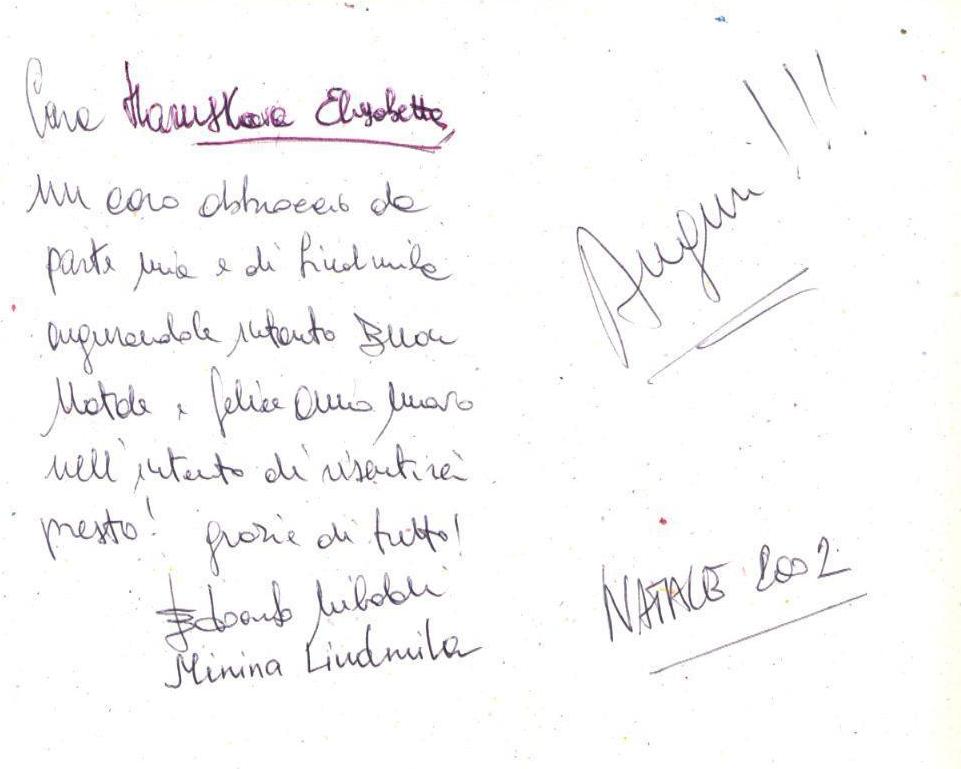 Cara Elisabetta
Un caro abbraccio da
parte mia e di Liudmila
augurandole intanto Buon
Natale e felice Anno nuovo
nell'intento di risentirci
presto! grazie di tutto!
Edoardo
Minina Liudmila
Auguri!!!
NATALE 2002